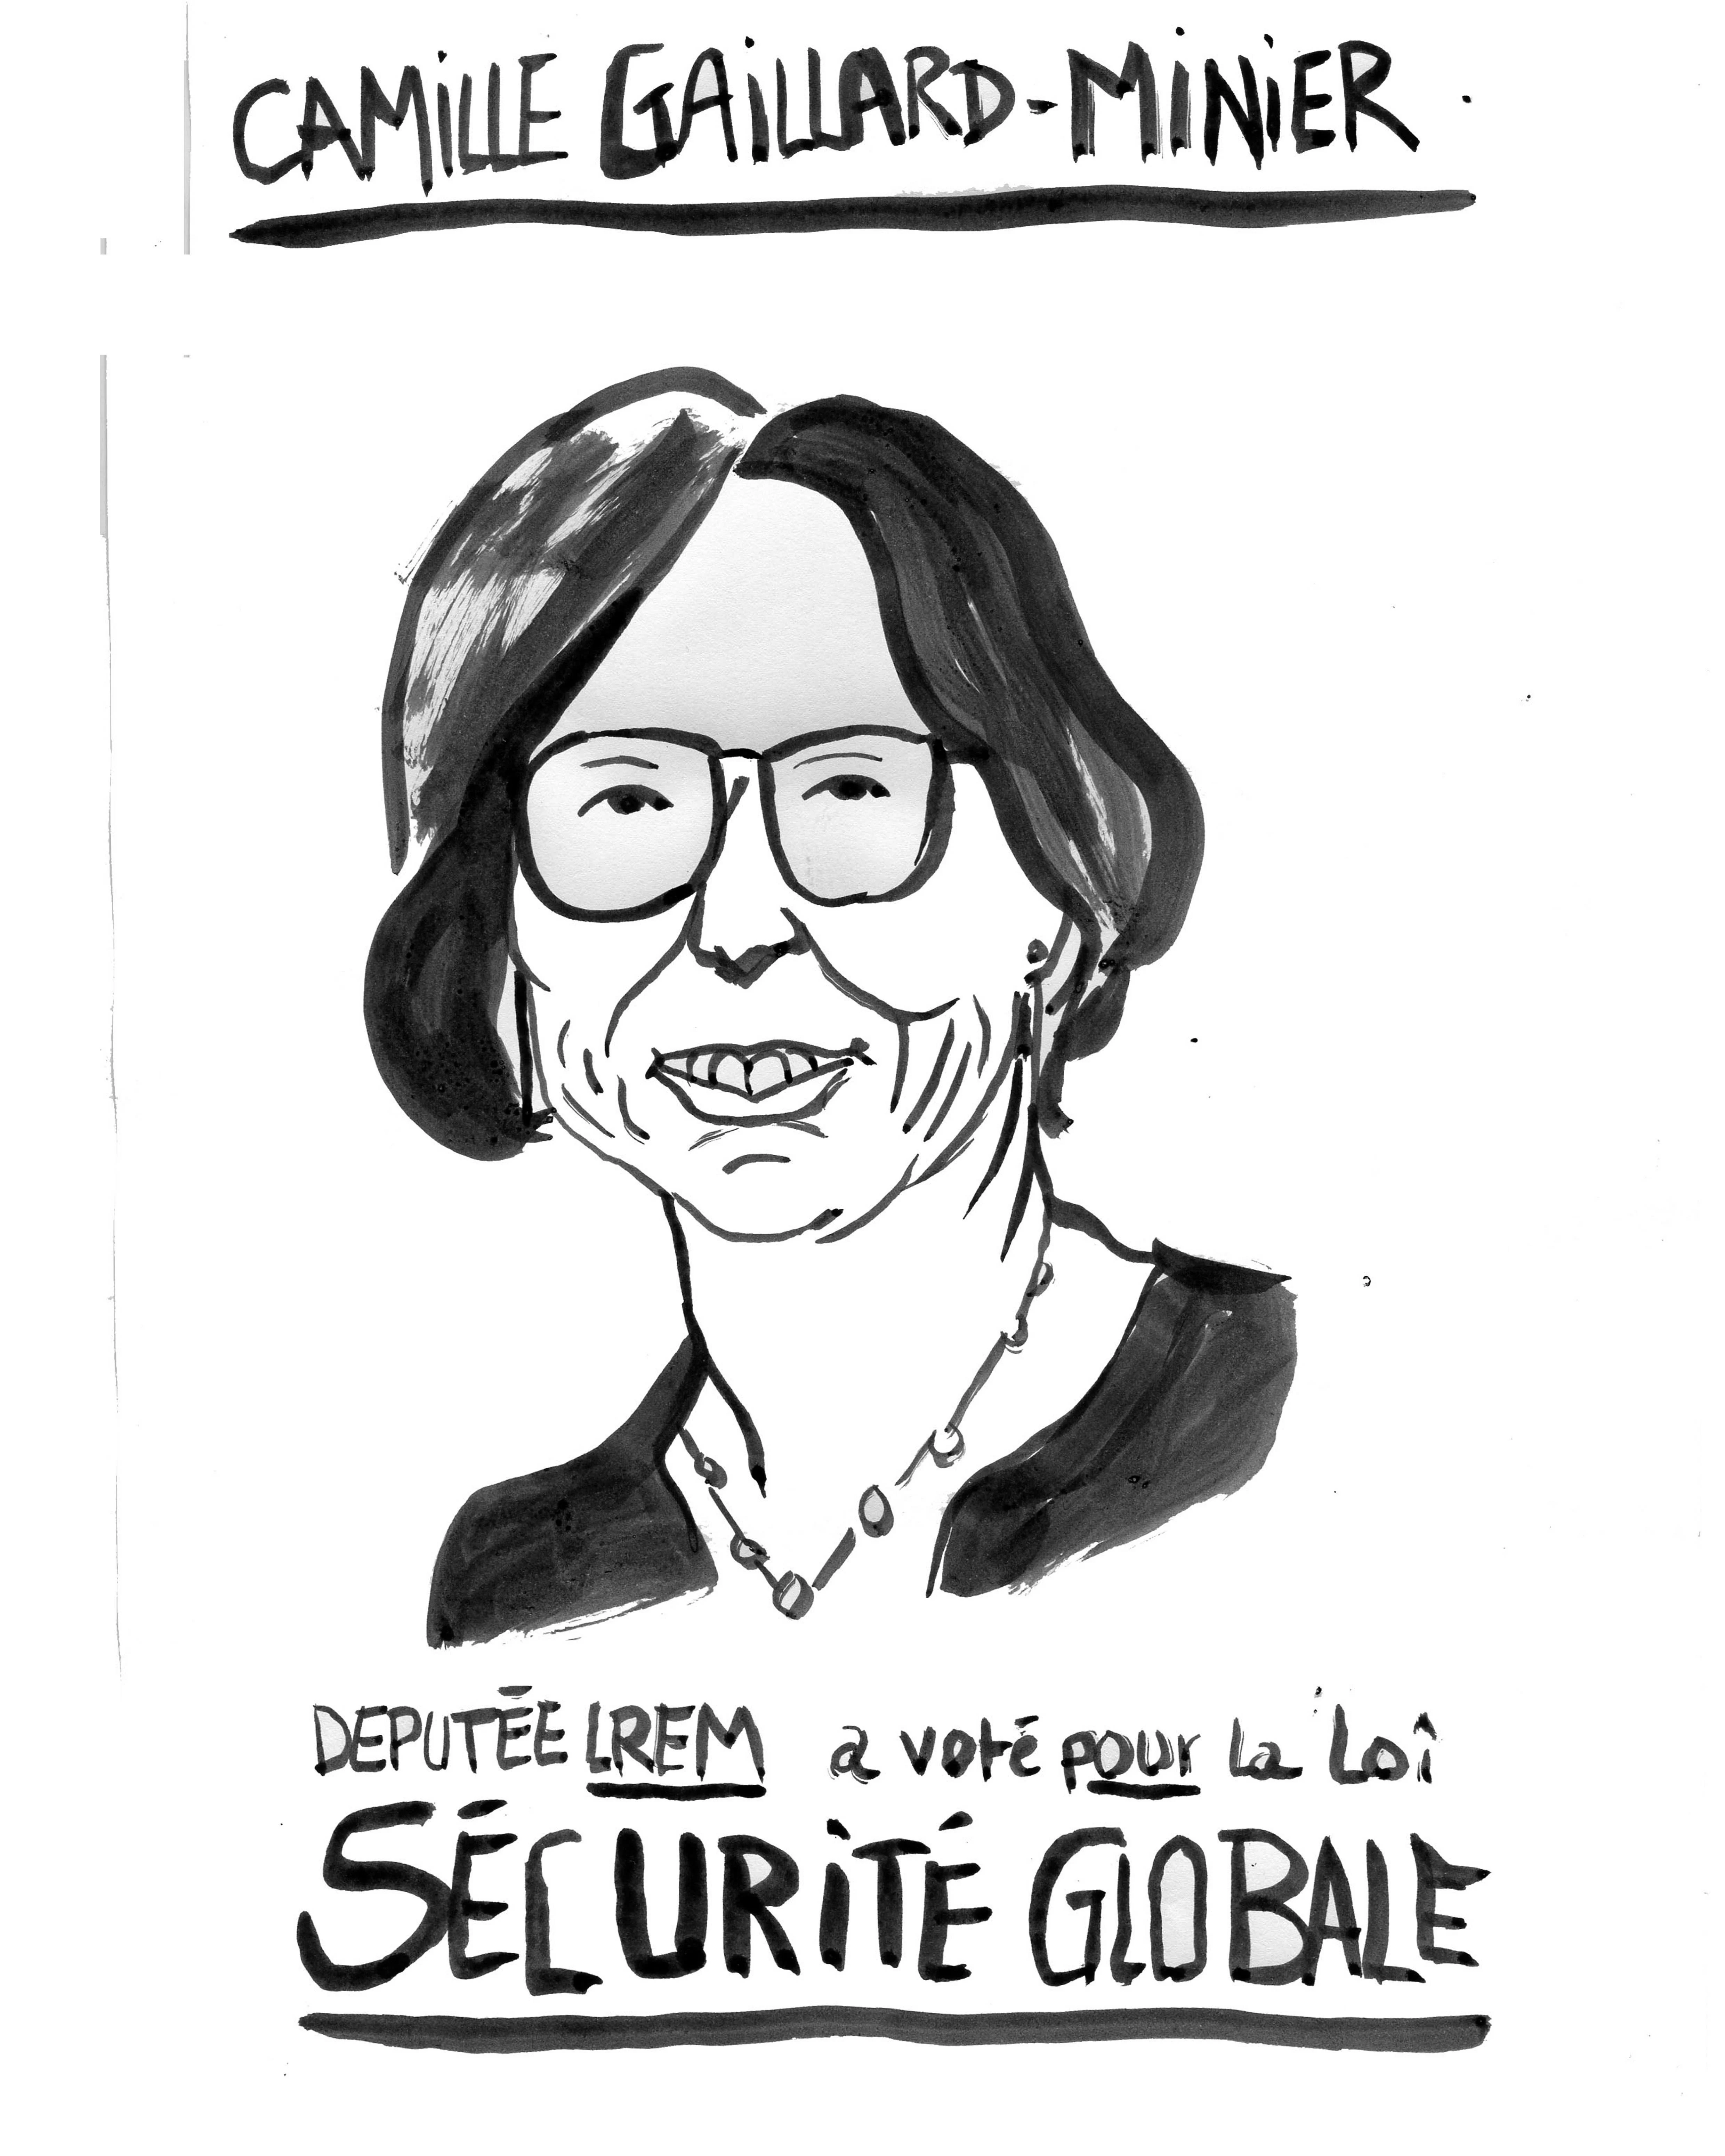 CAMILLE GAILLARD-MINIER
DEPUTÉE LREM a voté pour la Loi
SÉCURITÉ GLOBALE